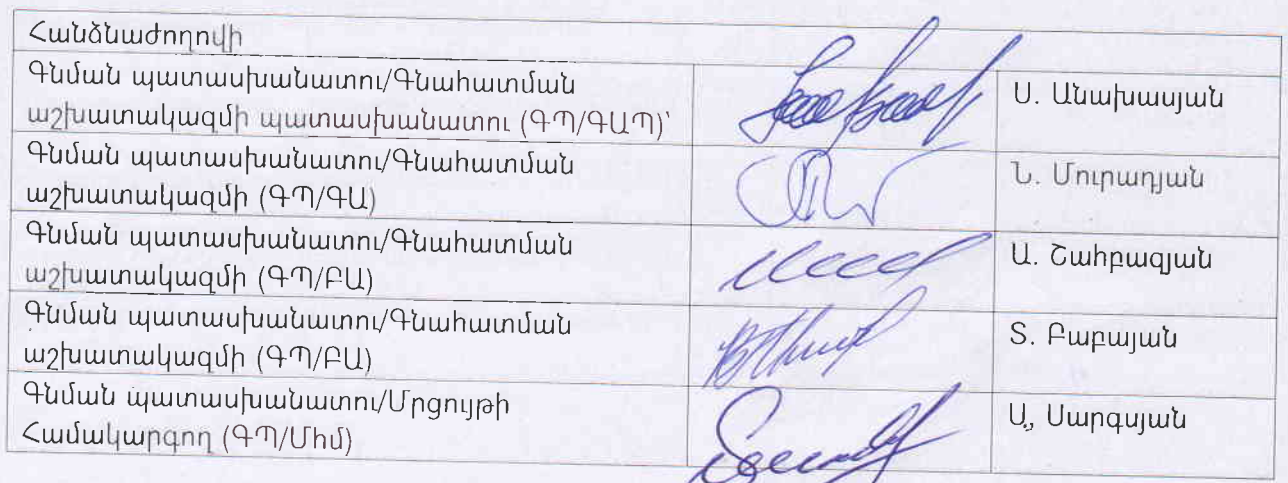 Հանձնաժողովի
Գնման պատասխանատու/Գնահատման
աշխատակազմի պատասխանատու (ԳՊ/ԳԱՊ)՝
Ս. Անախասյան
Գնման պատասխանատու/Գնահատման
աշխատակազմի (ԳՊ/ԳԱ)
Ն. Մուրադյան
Գնման պատասխանատու/Գնահատման
աշխատակազմի (ԳՊ/ԲԱ)
Ա. Շահբազյան
Գնման պատասխանատու/Գնահատման
աշխատակազմի (ԳՊ/ԲԱ)
Տ. Բաբայան
Գնման պատասխանատու/Մրցույթի
Համակարգող (ԳՊ/Մհմ)
Սարգսյան